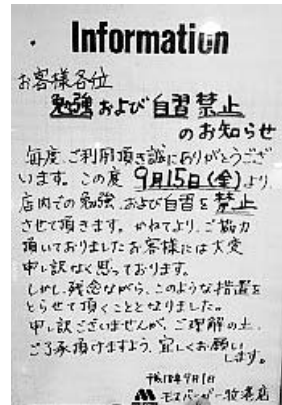 Information
お客様各位
勉強および自習禁止
のお知らせ
毎度、ご利用頂き誠にありがとうござ
います。この度 9月15日(金)より、
店内での勉強、および自習を禁止
させて頂きます。かねてより、ご協力
頂いておりましたお客様には大変
申し訳なく思っております。
しかし、残念ながら、このような措置を
とらせて頂くこととなりました。
申し訳ございませんが、ご理解の上、
ご了承頂けますよう、宜しくお願い
します。
平成18年9月1日
モスバーガー牧港店